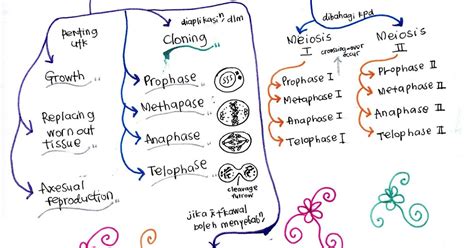 penting
utk
Growth
Replacing
worn out
tissue
Axesual
reproduction
diaplikasi² dlm
Cloning
Prophase
Methapase
Anaphase
Telophase
cleavage
furrow
jika x terkawal
boleh menyebab²
dibahagi kpd
Meiosis
I
crossing-over
occur
Prophase I
Metaphase I
Anaphase I
Telophase I
Meiosis
II
Prophase II
Metaphase II
Anaphase II
Telophase II